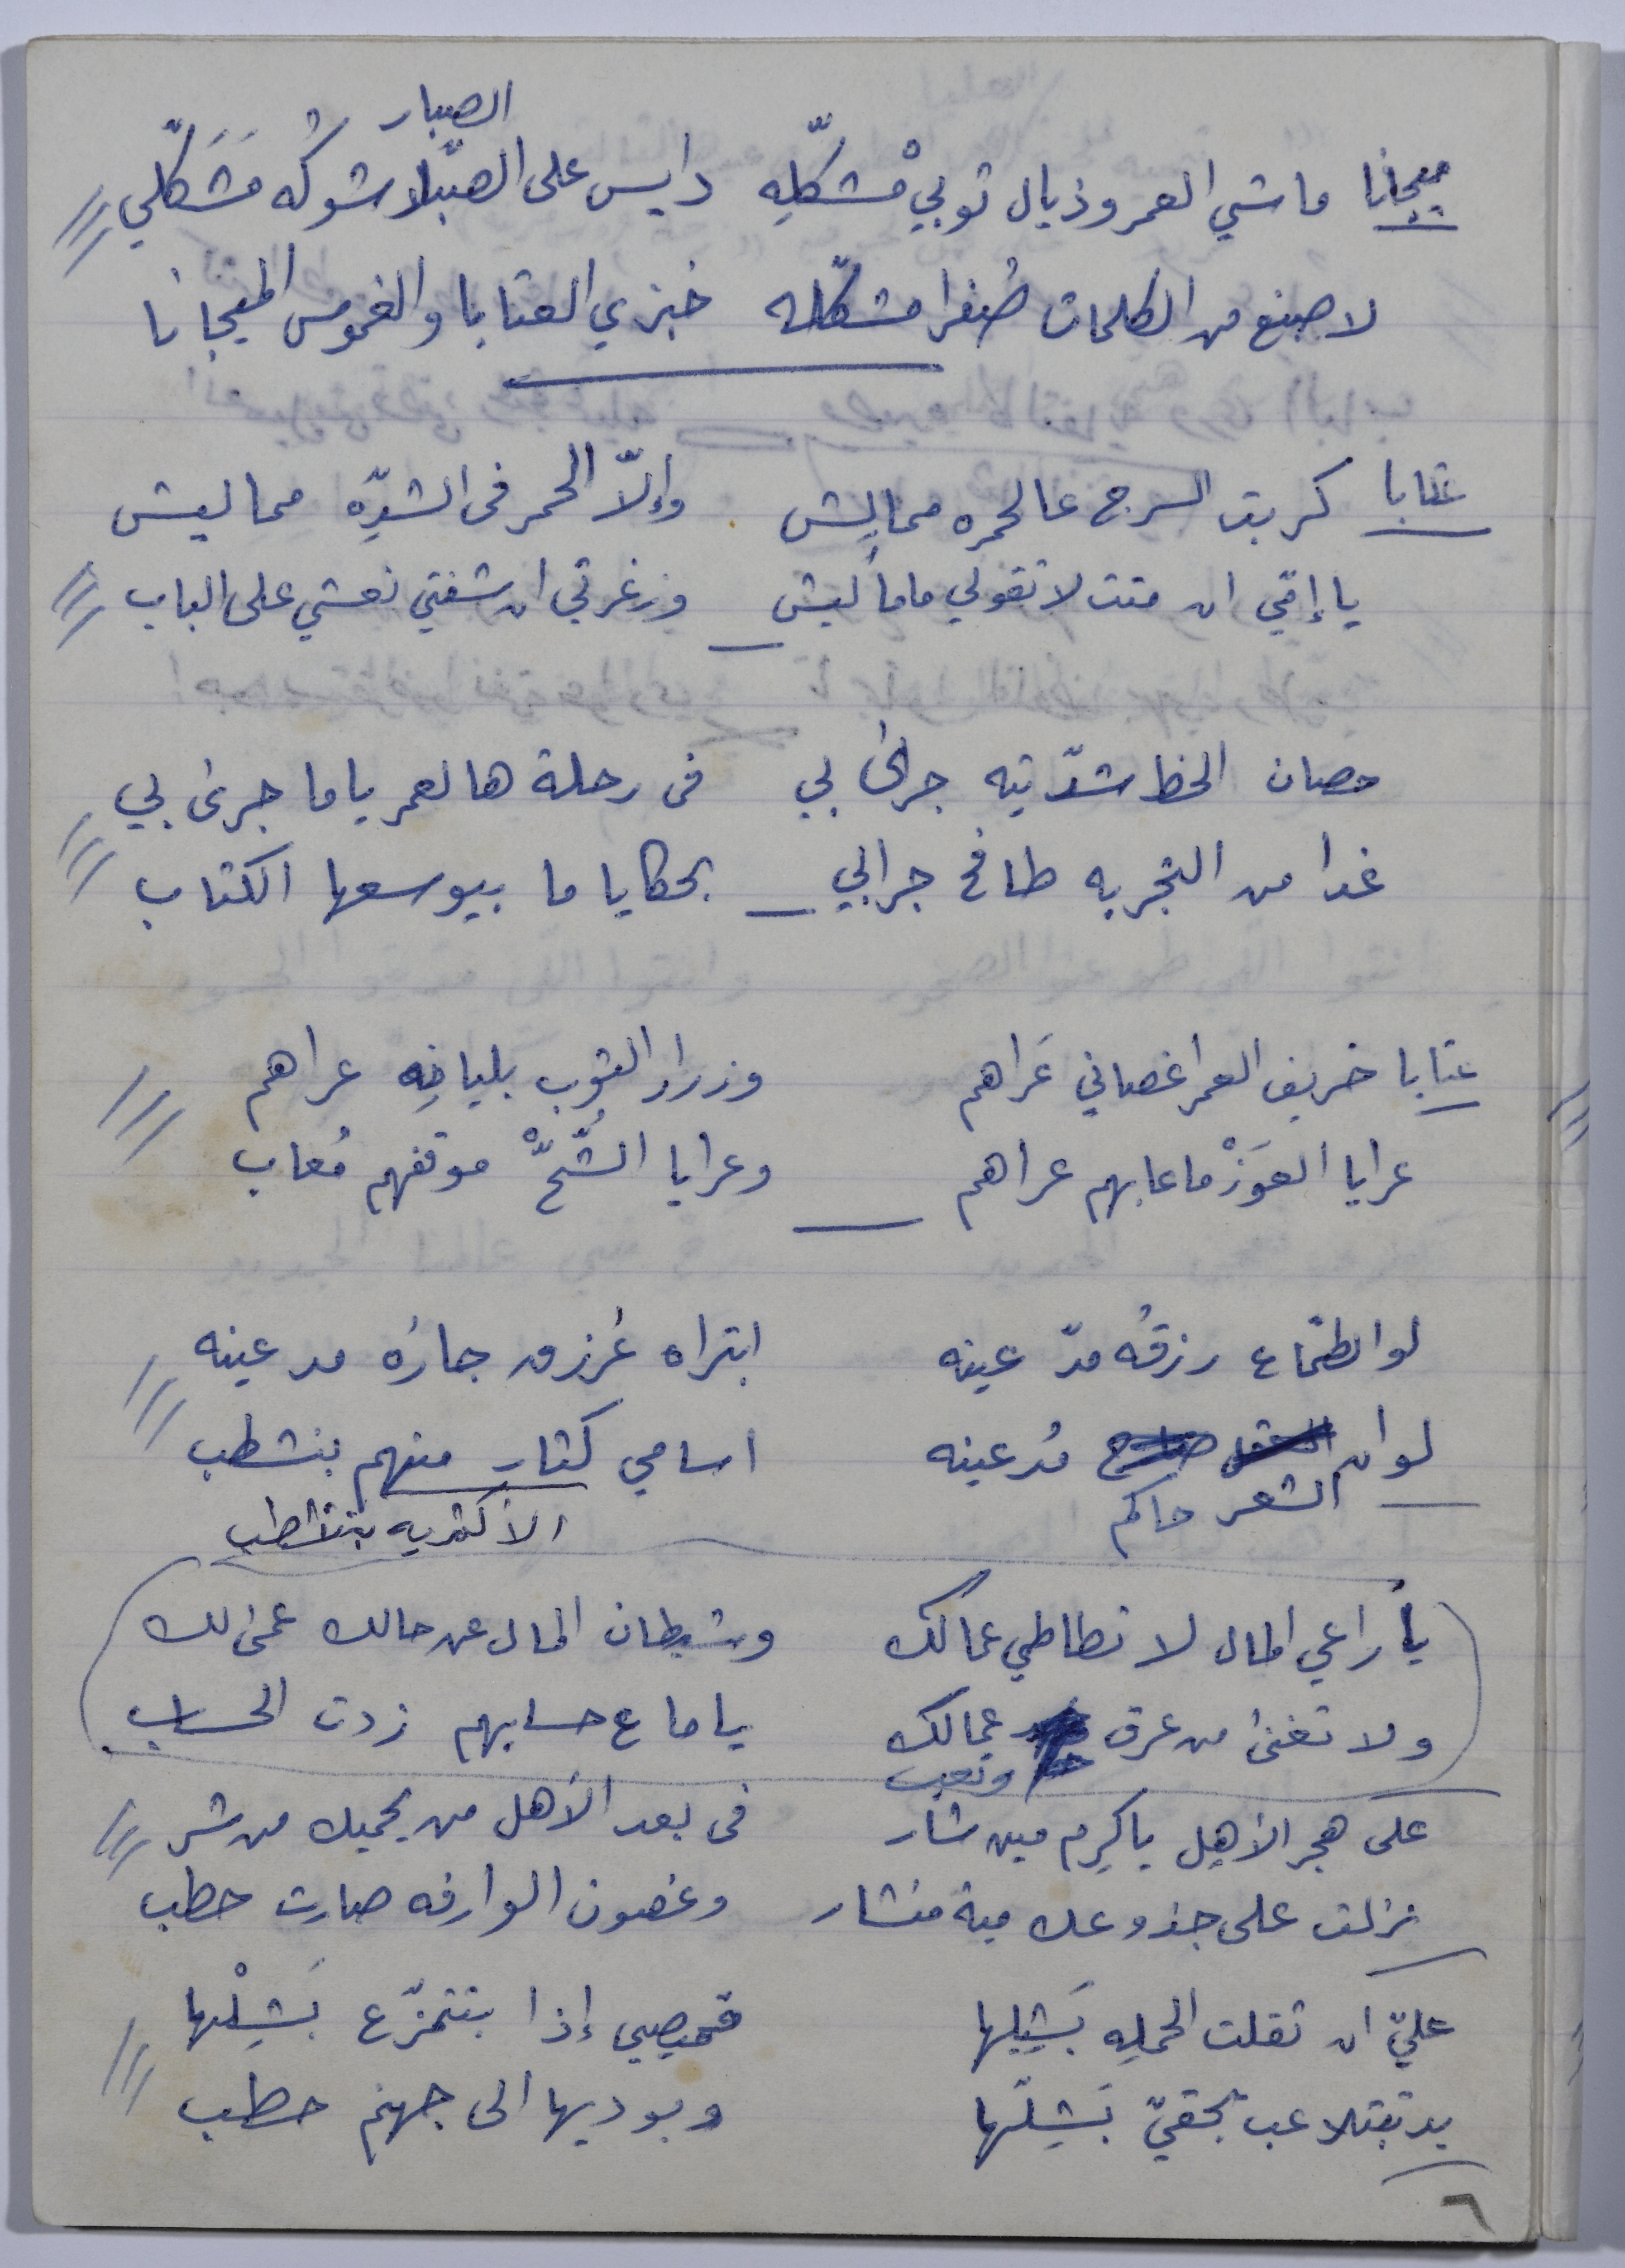 الصبار
ميجانا ماشي العمر وذيال توبي مْشكّلِه دايس على الصبّار شوكُه مَشَكّلي
لاصنع من الكلمات ضفرا مشكّله خبزي العتابا والغموس الميجانا
عتابا كربت السرج عالحمره محاليش وإلّا الحمر فى الشدِّه محاليش
يا إمّي ان متت لا تقولي ماما ليش وزغرتي ان شفتي نعشي على الباب
حصان الحظ شدّيته جرى بي فى رحلة هالعمر ياما جرى بي
غدا من التجربه طافح جرابي بحكايا ما بيوسعها الكتاب
عتابا خريف العمر اغصاني عَراهم وزرار التوب بلياخِه عراهم
عرايا العَوَزْ ما عابهم عراهم وعرايا الشُّحّْ موقفهم مُعاب
لو الطمّاع رزقُه مدّ عينه ابتراه عَرزق جارُه مد عينه
لو ان مُدعينه اسامي كتار منهم بنشطب
الشعر حاكم الأكثريه بتنشطب
يا راعي المال لا تطاطي عمالك وشيطان المال عن حالك عمى لك
ولا تغنى من عرق عمالك ياما ع حسابهم زدت الحساب
وتعب
على هجر الأهل ياكرم مين شار فى بعد الأهل من يحميك من شر
نزلت على جذوعك مية منشار وغصون الوارفه صارت حطب
عليّ ان تقلت الحملِه بَشِيلها قميصي إذا بتتمزّع بَشِلْها
يد تبتلاعب بحقيّ بَشِلّها وبوديها الى جهنم حطب
٦